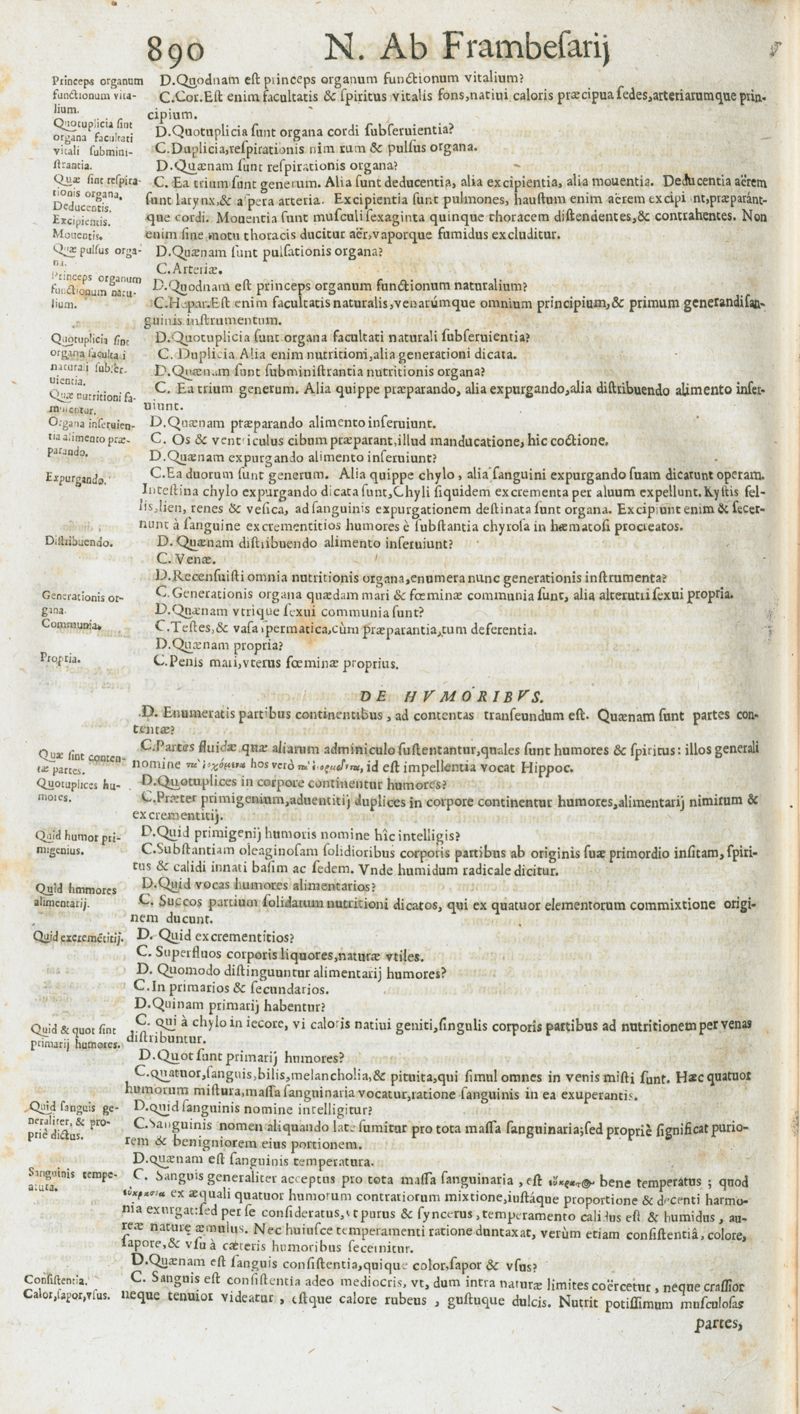 890 N. Ab Frambeſarij
Princeps organum functionum vitalium.
D.Quodnam eſt princeps organum functionum vitalium?
C.Cor.Eſt enim facultatis & ſpiritus vitalis fons,natiui caloris præcipua ſedes,arteriarumque prin-
cipium.
Quotuplicia ſint organa facultati vitali ſubminiſtrantia.
D.Quotuplicia ſunt organa cordi ſubſeruientia?
C.Duplicia,reſpirationis nim rum & pulſus organa.
D.Quænam ſunt reſpirationis organa?
Quæ ſint reſpirationis organa.
Deducentis.
Excipientis.
Mouentis.
C. Ea trium ſunt generum. Alia ſunt deducentia, alia excipientia, alia mouentia. Deducentia aërem
ſunt larynx,& aſpera arteria. Excipientia ſunt pulmones, hauſtum enim aërem excipi nt,præparánt-
que cordi. Mouentia ſunt muſculi ſexaginta quinque thoracem diſtendentes,& contrahentes. Non
enim ſine motu thoracis ducitur aër,vaporque fumidus excluditur.
Quæ pulſus organa.
D.Quænam ſunt pulſationis organa?
C.Arteriæ.
Princeps organum functionum naturalium.
D.Quodnam eſt princeps organum functionum naturalium?
C.Hepar.Eſt enim facultatis naturalis,venarúmque omnium principium,& primum generandi ſan-
guinis inſtrumentum.
Quotuplicia ſint organa faculta i naturali ſubſeruientia.
D.Quotuplicia ſunt organa facultati naturali ſubſeruientia?
C. Duplicia Alia enim nutritioni,alia generationi dicata.
D.Quænam ſunt ſubminiſtrantia nutritionis organa?
Quæ nutritioni famulentur.
C. Ea trium generum. Alia quippe præparando, alia expurgando,alia diſtribuendo alimento inſer-
uiunt.
Organa inſeruientia alimento præparando.
D.Quænam præparando alimento inſeruiunt.
C. Os & ventriculus cibum præparant,illud manducatione, hic coctione.
D.Quænam expurgando alimento inſeruiunt?
Expurgando.
C.Ea duorum ſunt generum. Alia quippe chylo, alia ſanguini expurgando ſuam dicarunt operam.
Inteſtina chylo expurgando dicata ſunt,Chyli ſiquidem excrementa per aluum expellunt.Kyſtis fel-
lis,lien, renes & veſica, ad ſanguinis expurgationem deſtinata ſunt organa. Excipiunt enim & ſecer-
nunt à ſanguine excrementitios humores è ſubſtantia chyroſa in hæmatoſi procreatos.
Diſtribuendo.
D. Quænam diſtribuendo alimento inſeruiunt?
C. Venæ.
D.Recenſuiſti omnia nutritionis organa,enumera nunc generationis inſtrumenta?
Generationis organa.
C.Generationis organa quædam mari & fœminæ communia ſunt, alia alterutri ſexui propria.
D.Quænam vtrique ſexui communia ſunt?
Communia.
C.Teſtes,& vaſa ſpermatica,cùm præparantia,tum deferentia.
D.Quænam propria?
Propria.
C.Penis mari,vterus fœminæ proprius.
DE HVMORIBVS.
D. Enumeratis partibus continentibus, ad contentas tranſeundum eſt. Quænam ſunt partes con-
tentæ?
Quæ ſint contentæ partes.
C.Partes fluidæ quæ aliarum adminiculo ſuſtentantur,quales ſunt humores & ſpiritus: illos generali
nomine τὰ ἰσχόμενα hos verò τὰ ἐνορμῶντα, id eſt impellentia vocat Hippoc.
Quotuplices humores.
D.Quotuplices in corpore continentur humores?
C.Præter primigenium,aduentitij duplices in corpore continentur humores,alimentarij nimirum &
excrementitij.
Quid humor primigenius.
D.Quid primigenij humoris nomine hîc intelligis?
C.Subſtantiam oleaginoſam ſolidioribus corporis partibus ab originis ſuæ primordio inſitam, ſpiri-
tus & calidi innati baſim ac ſedem. Vnde humidum radicale dicitur.
Quid humores alimentarij.
D.Quid vocas humores alimentarios?
C. Succos partium ſolidarum nutritioni dicatos, qui ex quatuor elementorum commixtione origi-
nem ducunt.
Quid excremētitij.
D. Quid excrementitios?
C. Superfluos corporis liquores,naturæ vtiles.
D. Quomodo diſtinguuntur alimentarij humores?
C.In primarios & ſecundarios.
D.Quinam primarij habentur?
Quid & quot ſint primarij humores.
C. qui à chylo in iecore, vi caloris natiui geniti,ſingulis corporis partibus ad nutritionem per venas
diſtribuntur.
D.Quot ſunt primarij humores?
C.quatuor,ſanguis,bilis,melancholia,& pituita,qui ſimul omnes in venis miſti ſunt. Hæc quatuor
humorum miſtura,maſſa ſanguinaria vocatur,ratione ſanguinis in ea exuperantis.
Quid ſanguis generaliter, & propriè dictus.
D.quid ſanguinis nomine intelligitur?
C.Sanguinis nomen aliquando latè ſumitur pro tota maſſa ſanguinaria;ſed propriè ſignificat purio-
rem & benigniorem eius portionem.
D.quænam eſt ſanguinis temperatura.
Sanguinis temperatura.
C. Sanguis generaliter acceptus pro tota maſſa ſanguinaria, eſt εὔκρατος bene temperatus ; quod
εὐκρασία ex æquali quatuor humorum contrariorum mixtione,iuſtáque proportione & decenti harmo-
nia exurgat:ſed per ſe conſideratus,vt purus & ſyncerus, temperamento calidus eſt & humidus, au-
reæ naturę æmulus. Nec huiuſce temperamenti ratione duntaxat, verùm etiam conſiſtentiâ, colore,
ſapore,& vſu à cæteris humoribus ſecernitur.
D.Quænam eſt ſanguis conſiſtentia,quique color,ſapor & vſus?
Conſiſtentia.
Calor,ſapor,vſus.
C. Sanguis eſt conſiſtentia adeo mediocris, vt, dum intra naturæ limites coërcetur, neque craſſior
neque tenuior videatur , eſtque calore rubeus , guſtuque dulcis. Nutrit potiſſimum muſculoſas
partes,